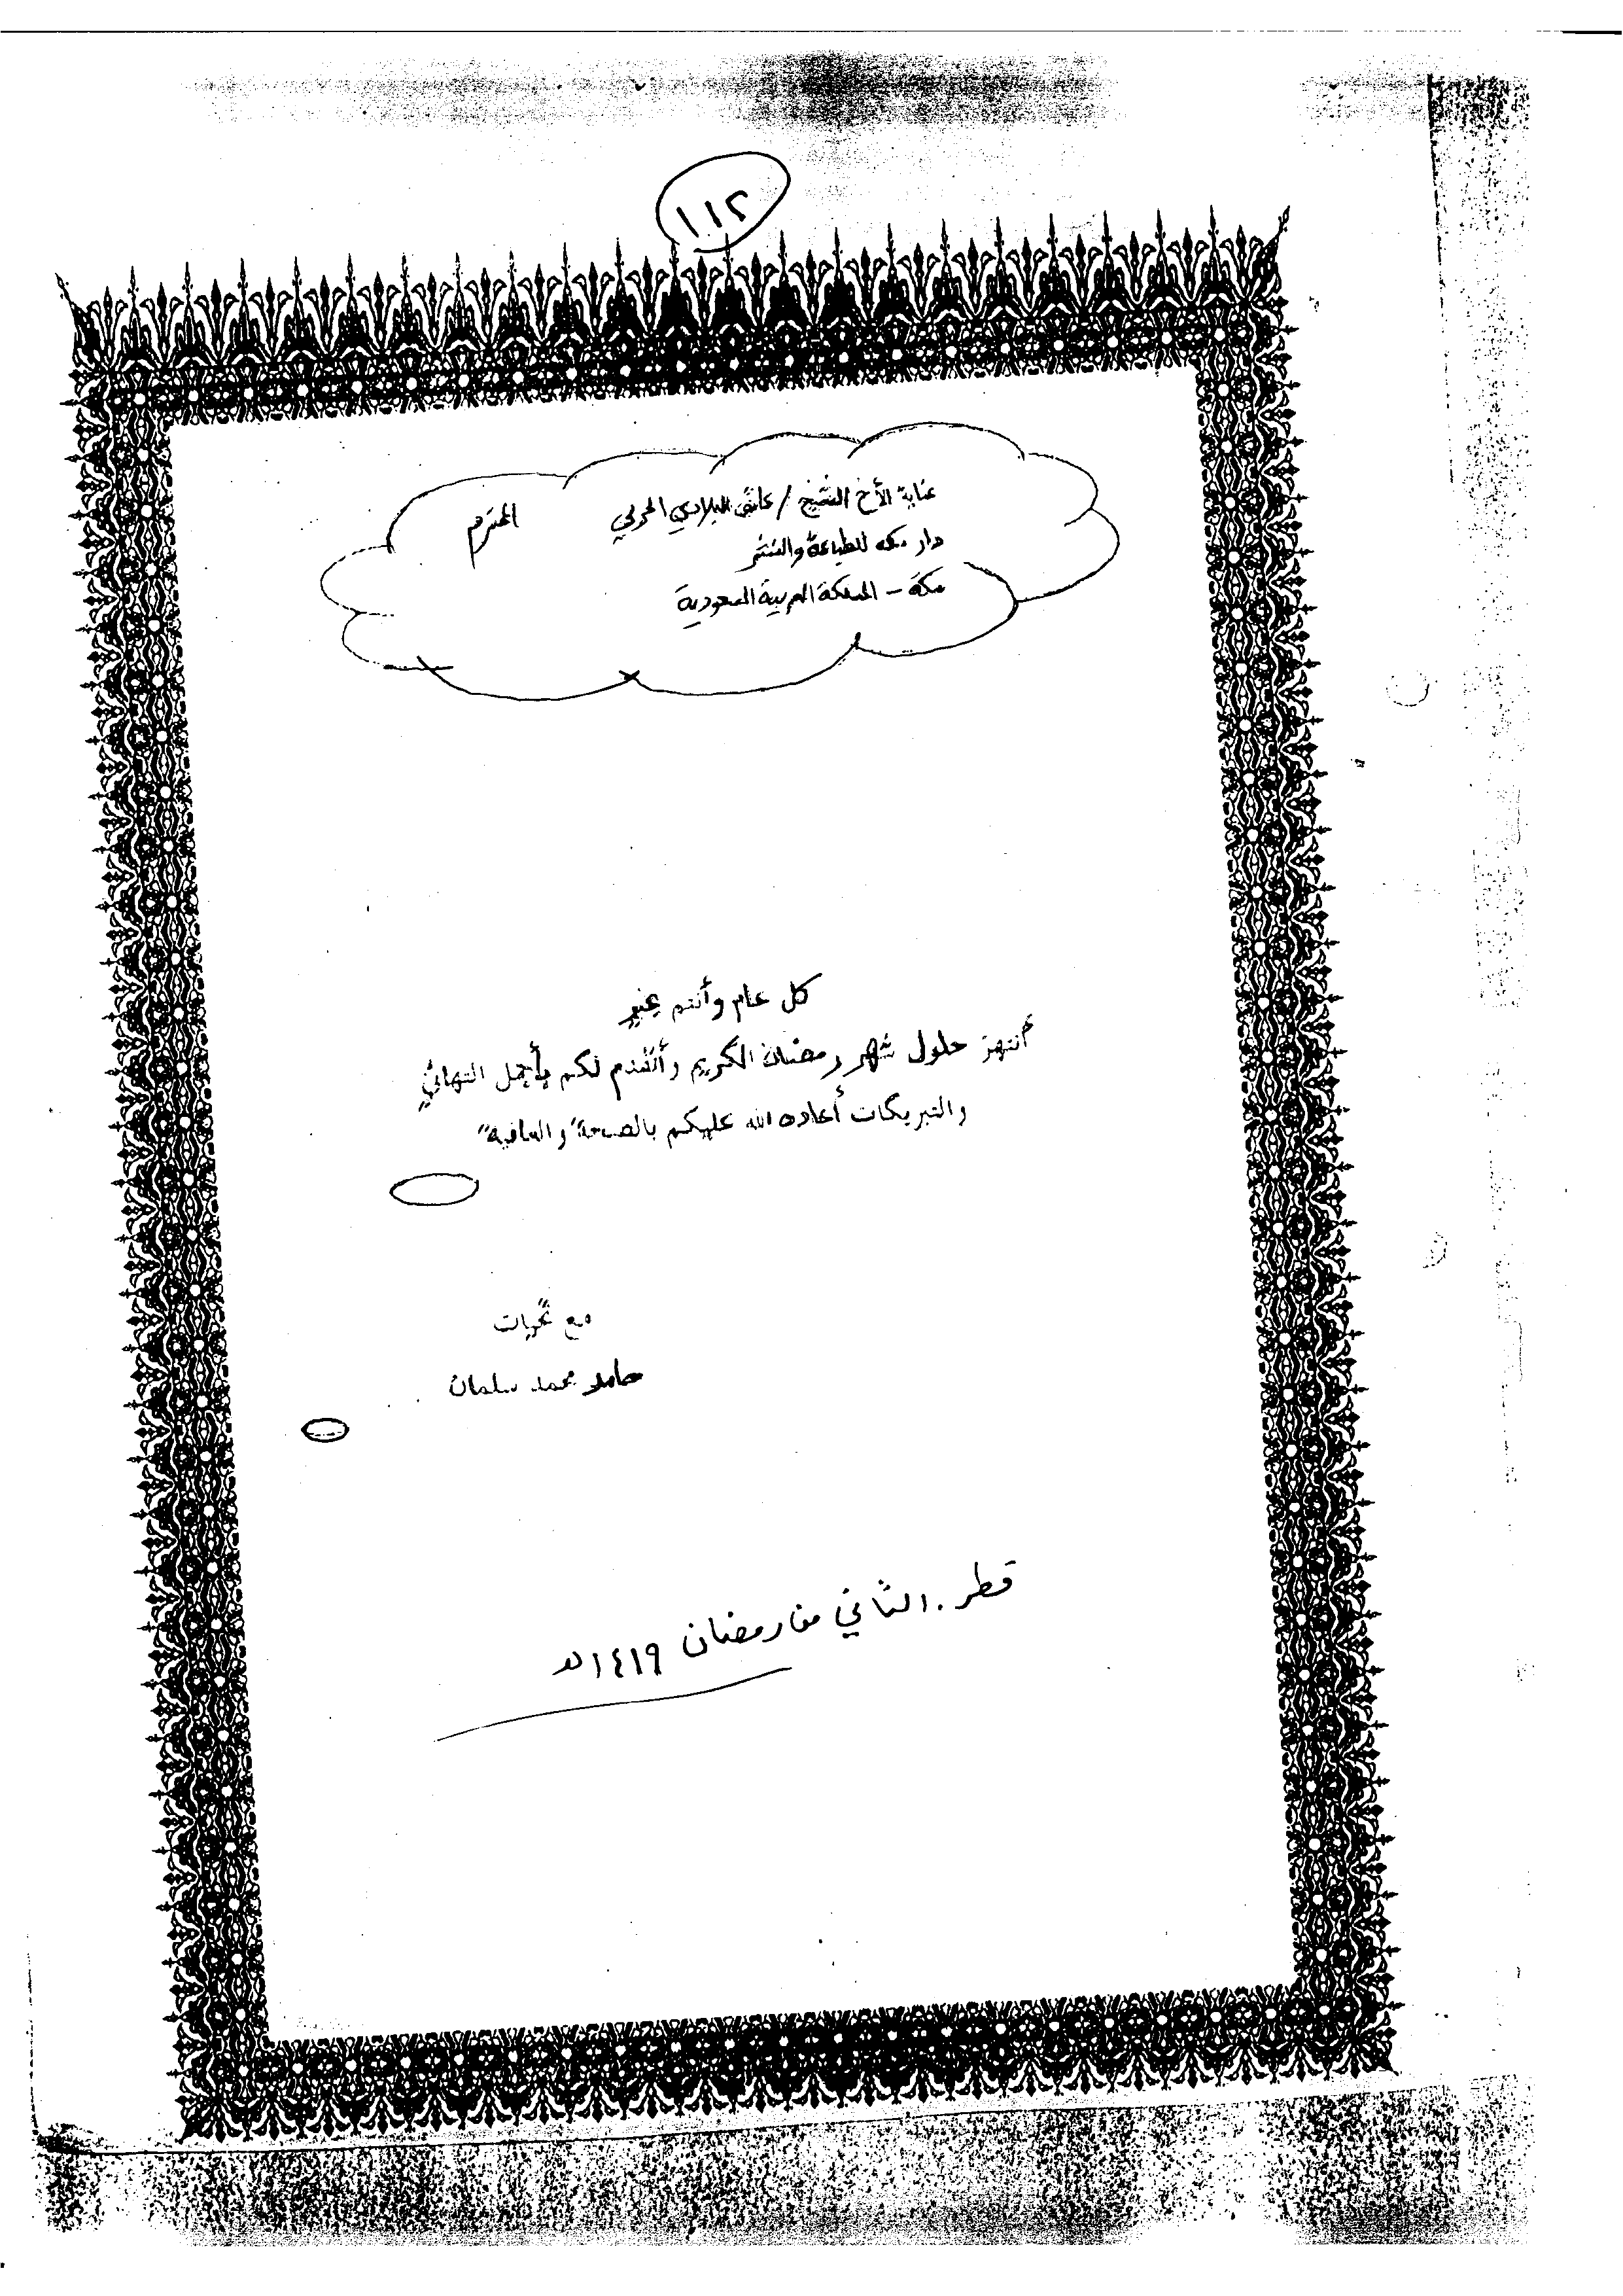 ١١٢
عناية الأخ الشيخ / عاتق البلادي الحربي المحترم
دار مكه للطباعة والنشر
مكة - المملكة العربية السعودية
كل عام وأنتم بخير
أنتهز حلول شهر رمضان الكريم وأتقدم لكم بأجمل التهاني
والتبريكات أعاده الله عليكم بالصحة والعافية
مع تحيات
حامد محمد سلمان
قطر . الثاني من رمضان ١٤١٩هـ